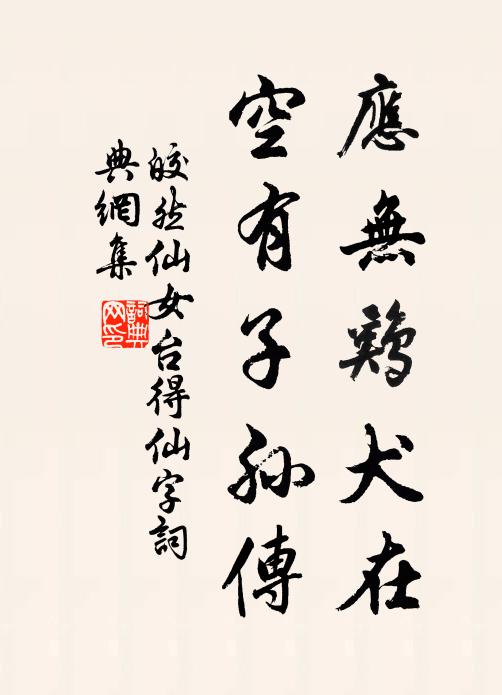 應無鷄犬在
空有子孫傳
皎然仙女台得仙字詞
典網集
詞典
网印